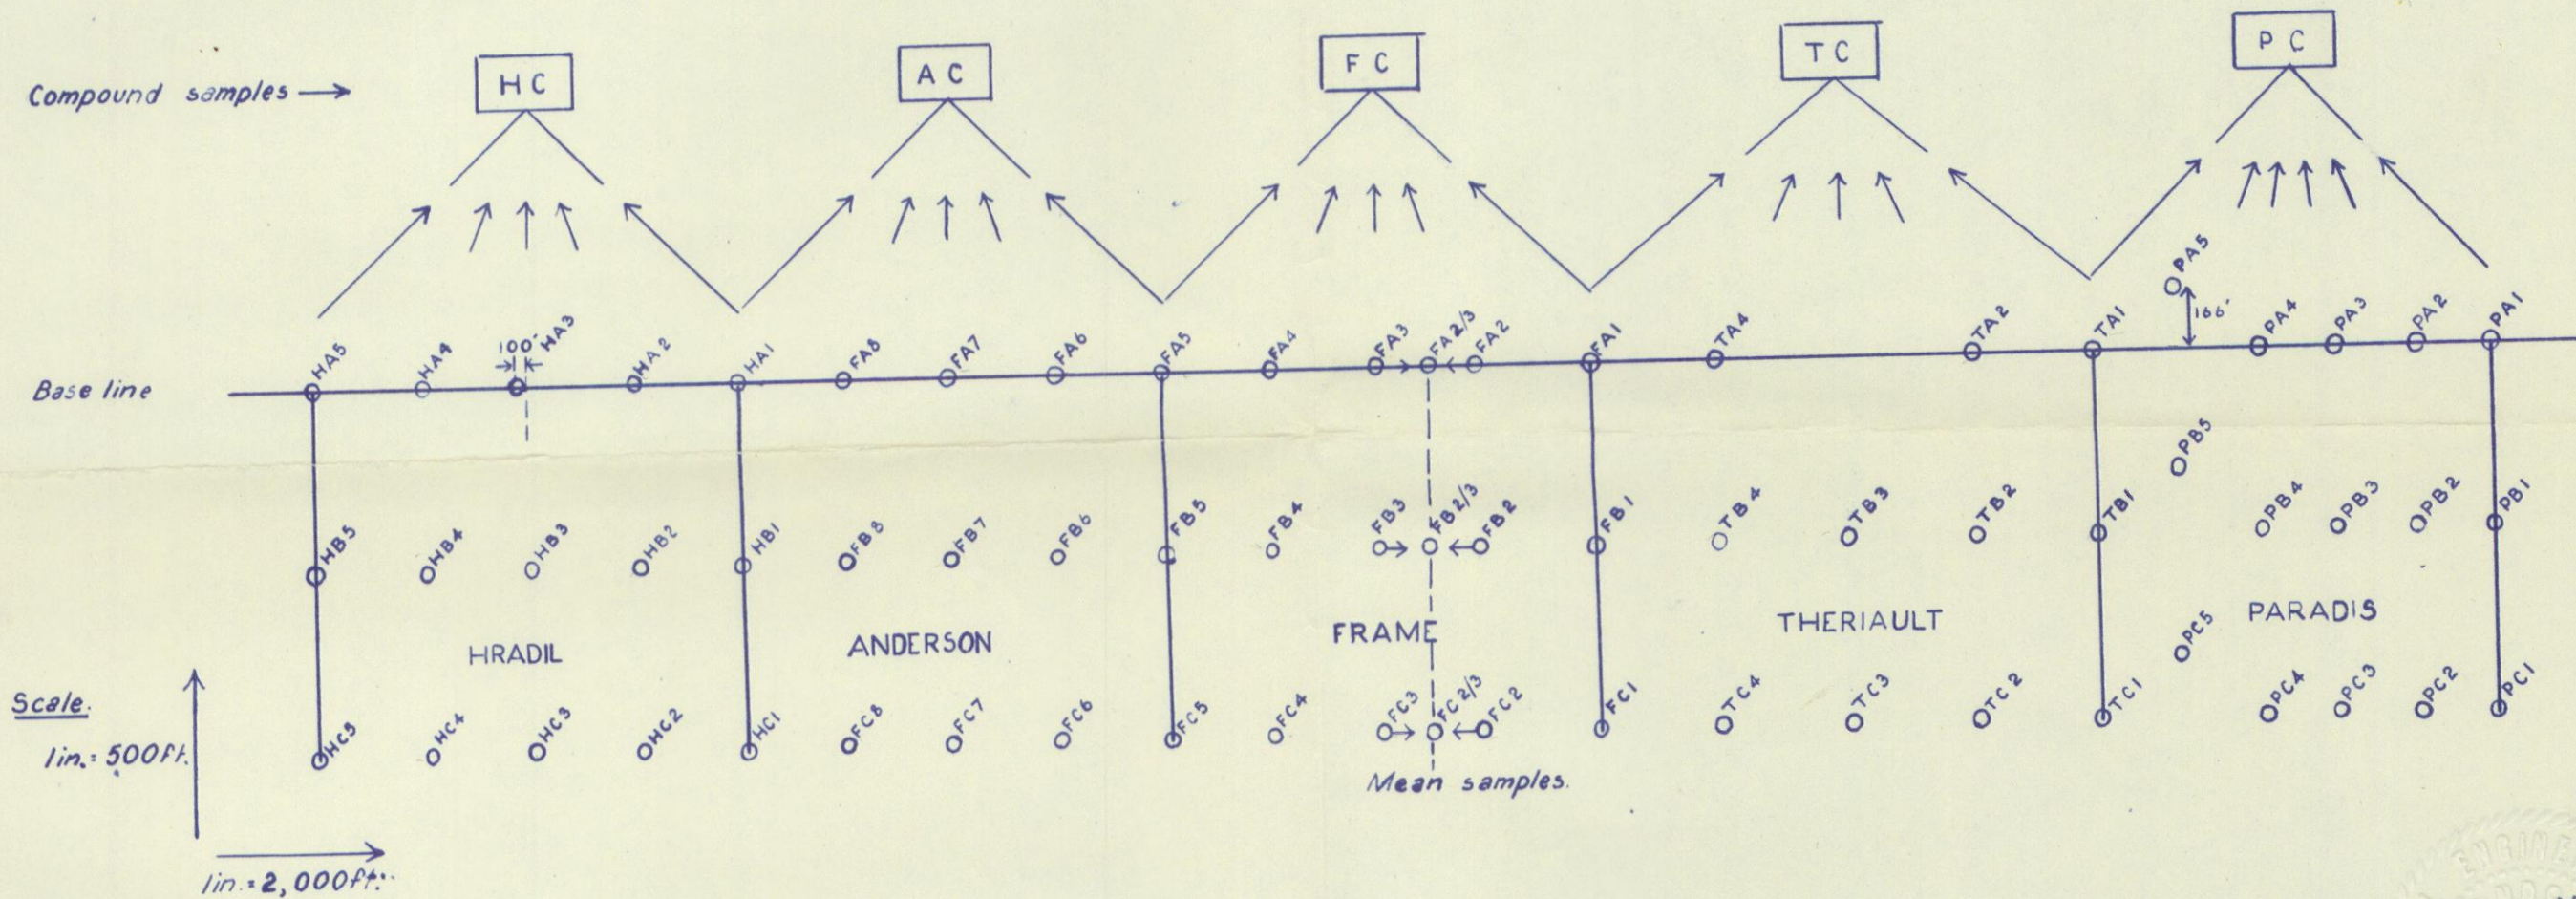 Compound samples
HC
AC
FC
TC
PC
Base line
HA5
HA4
100'
HA3
HA2
HA1
FA8
FA7
FA6
FA5
FA4
FA3
FA2/3
FA2
FA1
TA4
TA2
TA1
PA5
PA4
PA3
PA2
PA1
HB5
HB4
HB3
HB2
HB1
FB8
FB7
FB6
FB5
FB4
FB3
FB2/3
FB2
FB1
TB4
TB3
TB2
TB1
PB5
PB4
PB3
PB2
PB1
HRADIL
ANDERSON
FRAME
THERIAULT
PARADIS
HC5
HC4
HC3
HC2
HC1
FC8
FC7
FC6
FC5
FC4
FC3
FC2/3
FC2
FC1
TC4
TC3
TC2
TC1
PC5
PC4
PC3
PC2
PC1
Mean samples.
Scale.
1in.= 500ft.
1in.= 2,000ft.